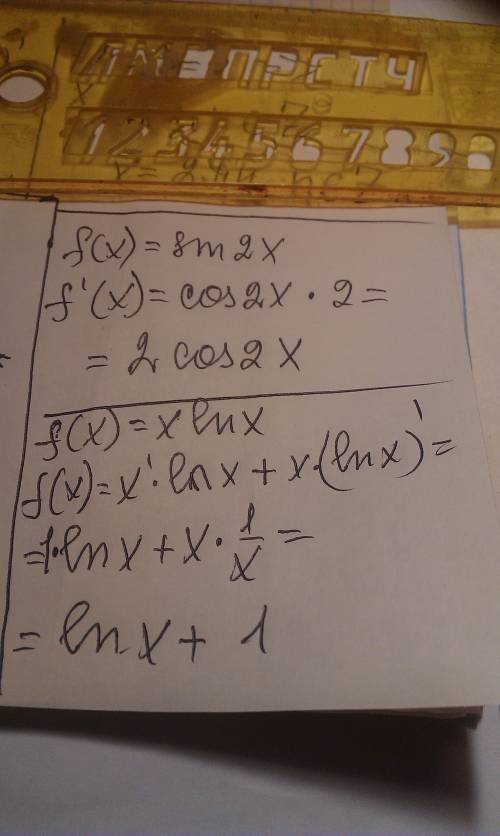 ПРСТЧ
1234567890
f(x) = sin2x
f'(x) = cos2x · 2 =
= 2 cos2x
f(x) = x lnx
f(x) = x' · lnx + x · (lnx)' =
= 1 · lnx + x · 1/x =
= lnx + 1